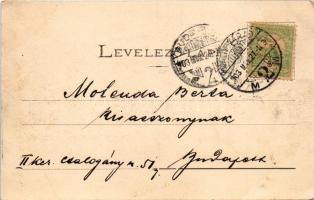 LEVELEZ
Molenda Berta
Kisasszonynak
II ker. csalogány u. 57
Budapest